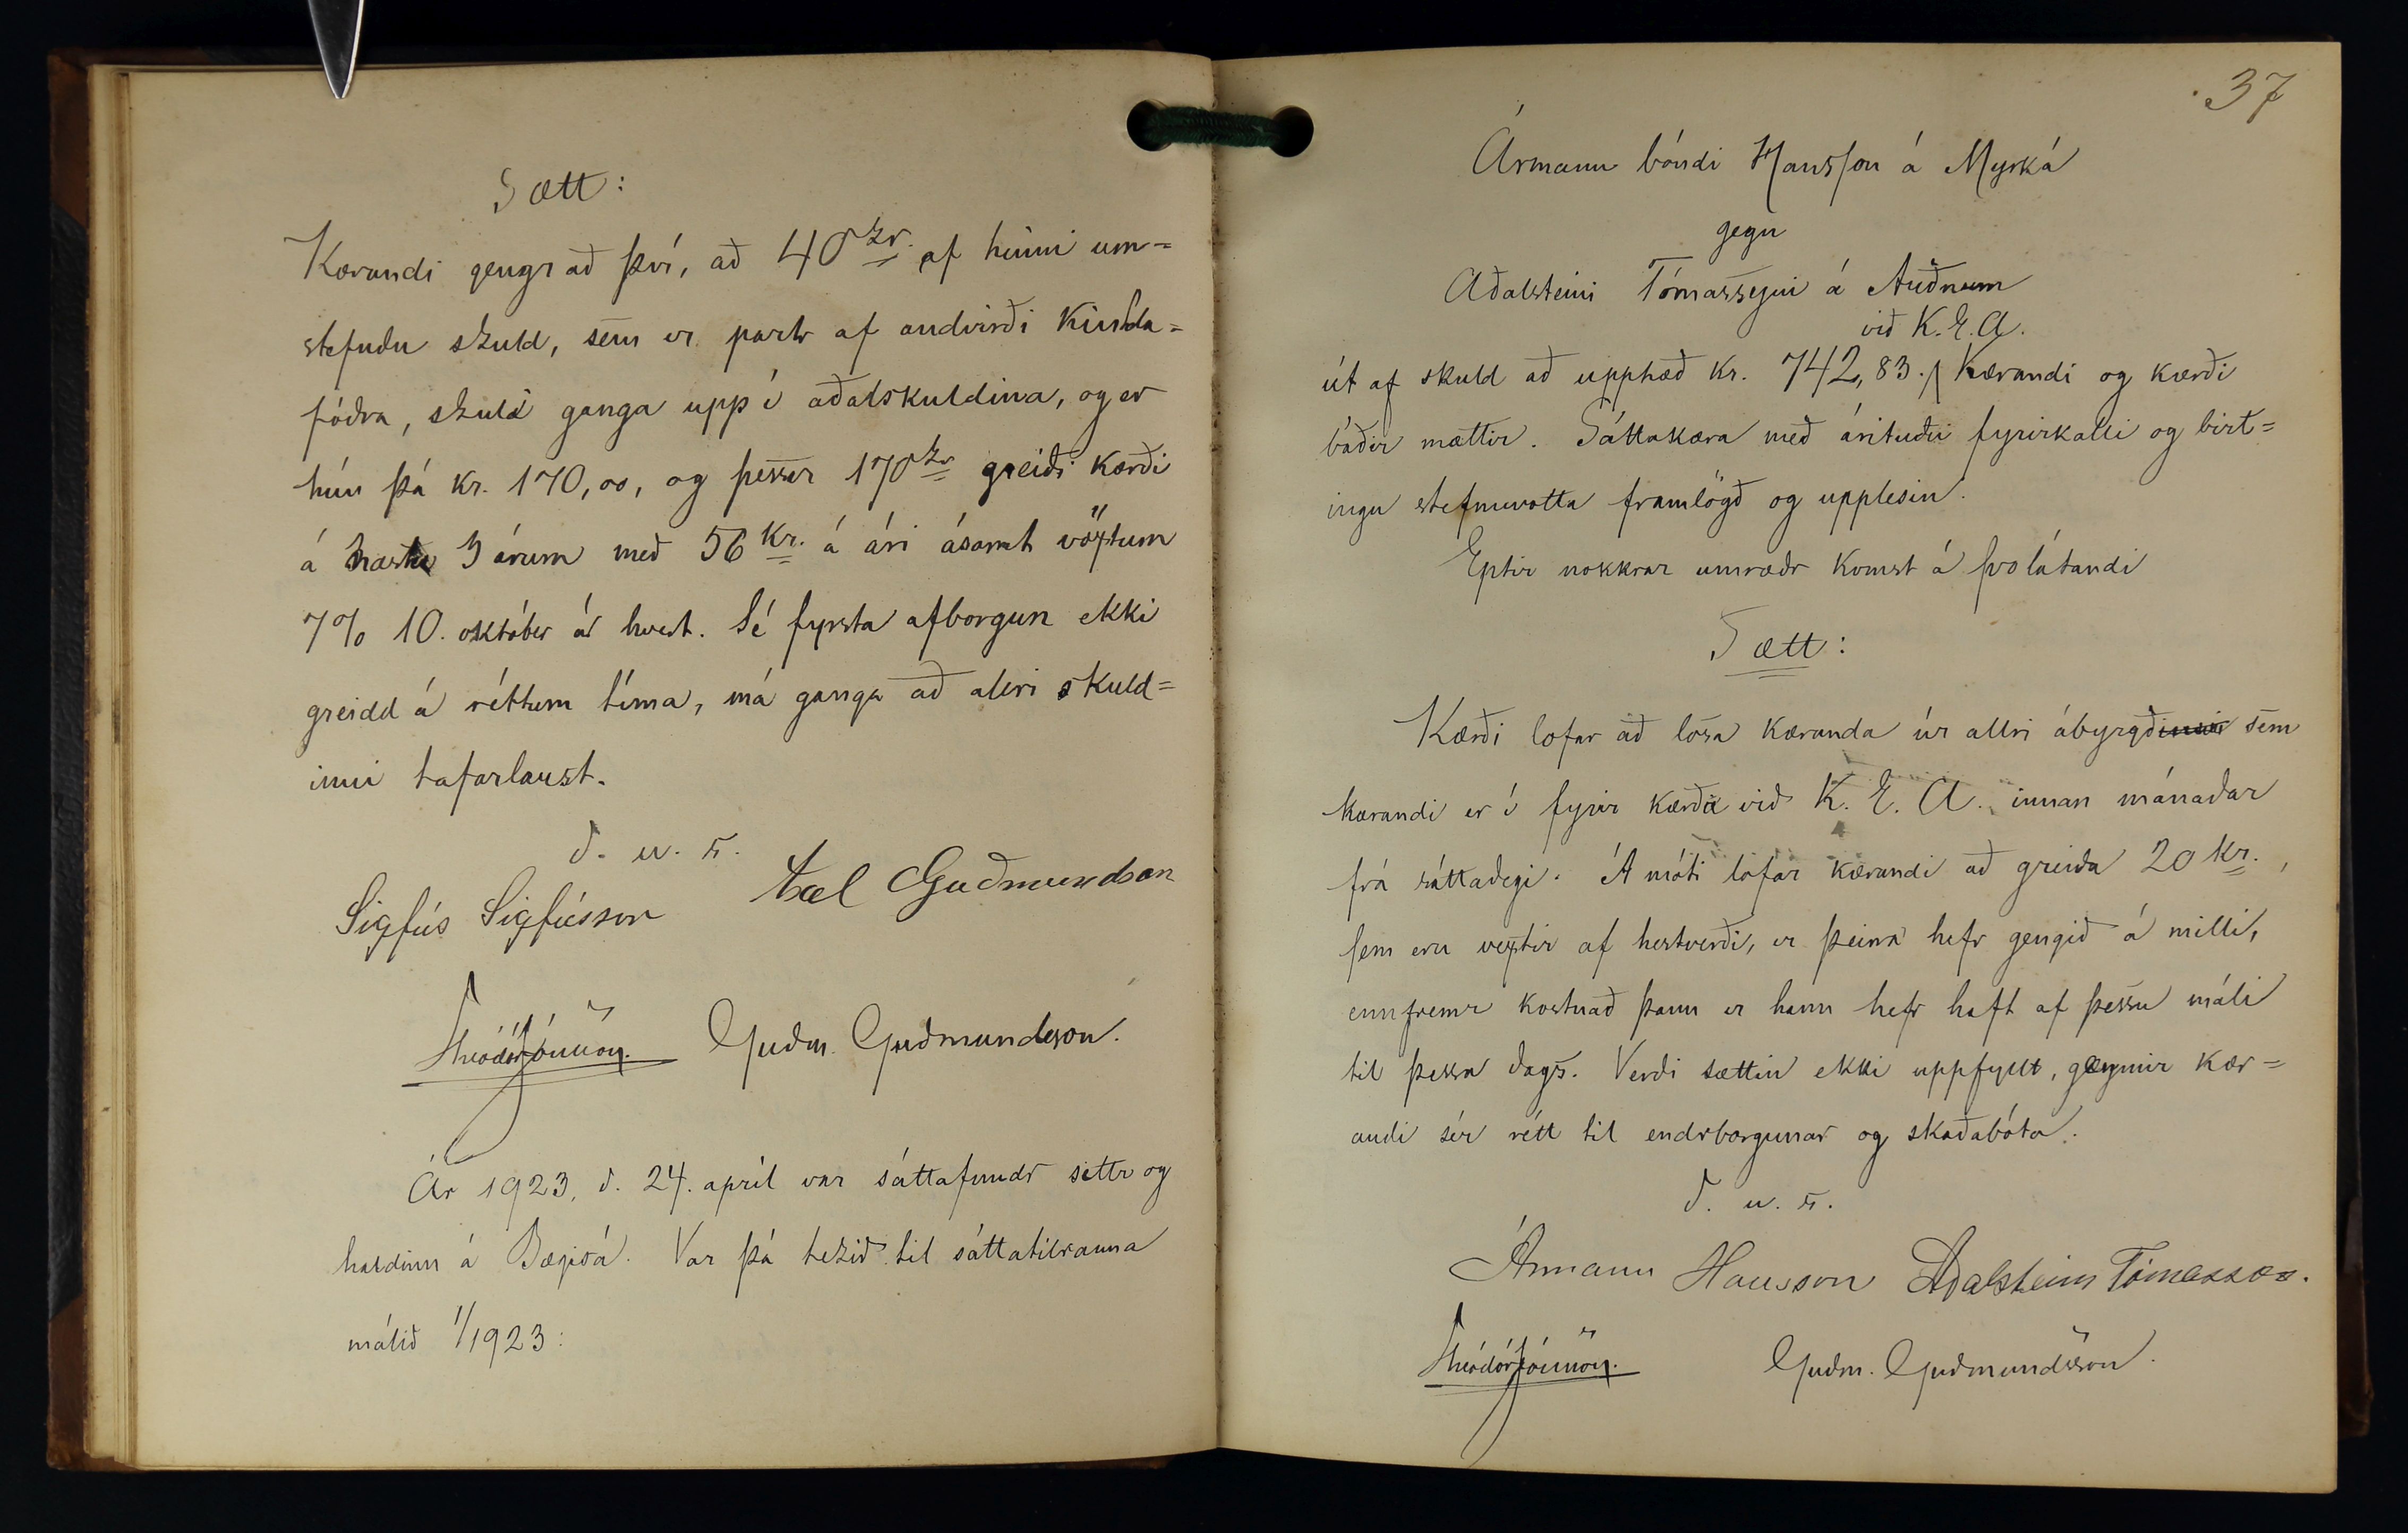 Sætt:
Kærandi gengr að því, að 40 kr. af hinni um=
stefndu skuld, sem er partr af andvirði kinda=
fóðra, skuli ganga upp í aðalskuldina, og er
hún þá kr. 170,00, og þessar 170 kr greiði kærði
á næstu 3 árum með 56 kr. á ári ásamt vöxtum
7% 10. október ár hvert. Sé fyrsta afborgun ekki
greidd á réttum tíma, má ganga að allri skuld=
inni tafarlaust.
d. u. s.
Sigfús Sigfússon Axel Guðmundson
Theódór Jónsson. Guðm. Guðmundsson.
Ár 1923, d. 24. apríl var sáttafundr settr og
haldinn á Bægisá. Var þá tekið til sáttatilrauna
málið 1/1923:
37
Ármann bóndi Hansson á Myrká
gegn
Aðalsteini Tómassyni á Auðnum
við K.E.A.
út af skuld að upphæð kr. 742,83. / Kærandi og kærði
báðir mættir. Sáttakæra með árituðu fyrirkalli og birt=
ingu stefnuvotta framlögð og upplesin.
Eptir nokkrar umræðr komst á svolátandi
Sætt:
Kærði lofar að losa kæranda úr allri ábyrgðinni sem
kærandi er í fyrir kærða við K. E. A. innan mánaðar
frá sáttadegi. Á móti lofar kærandi að greiða 20 kr.,
sem eru vextir af hestverði, er þeirra hefr gengið á milli,
ennfremr kostnað þann er hann hefr haft af þessu máli
til þessa dags. Verði sættin ekki uppfyllt, geymir kær=
andi sér rétt til endrborgunar og skaðabóta.
d. u. s.
Ármann Hansson Aðalsteinn Tómasson.
Theódór Jónsson. Guðm. Guðmundsson.